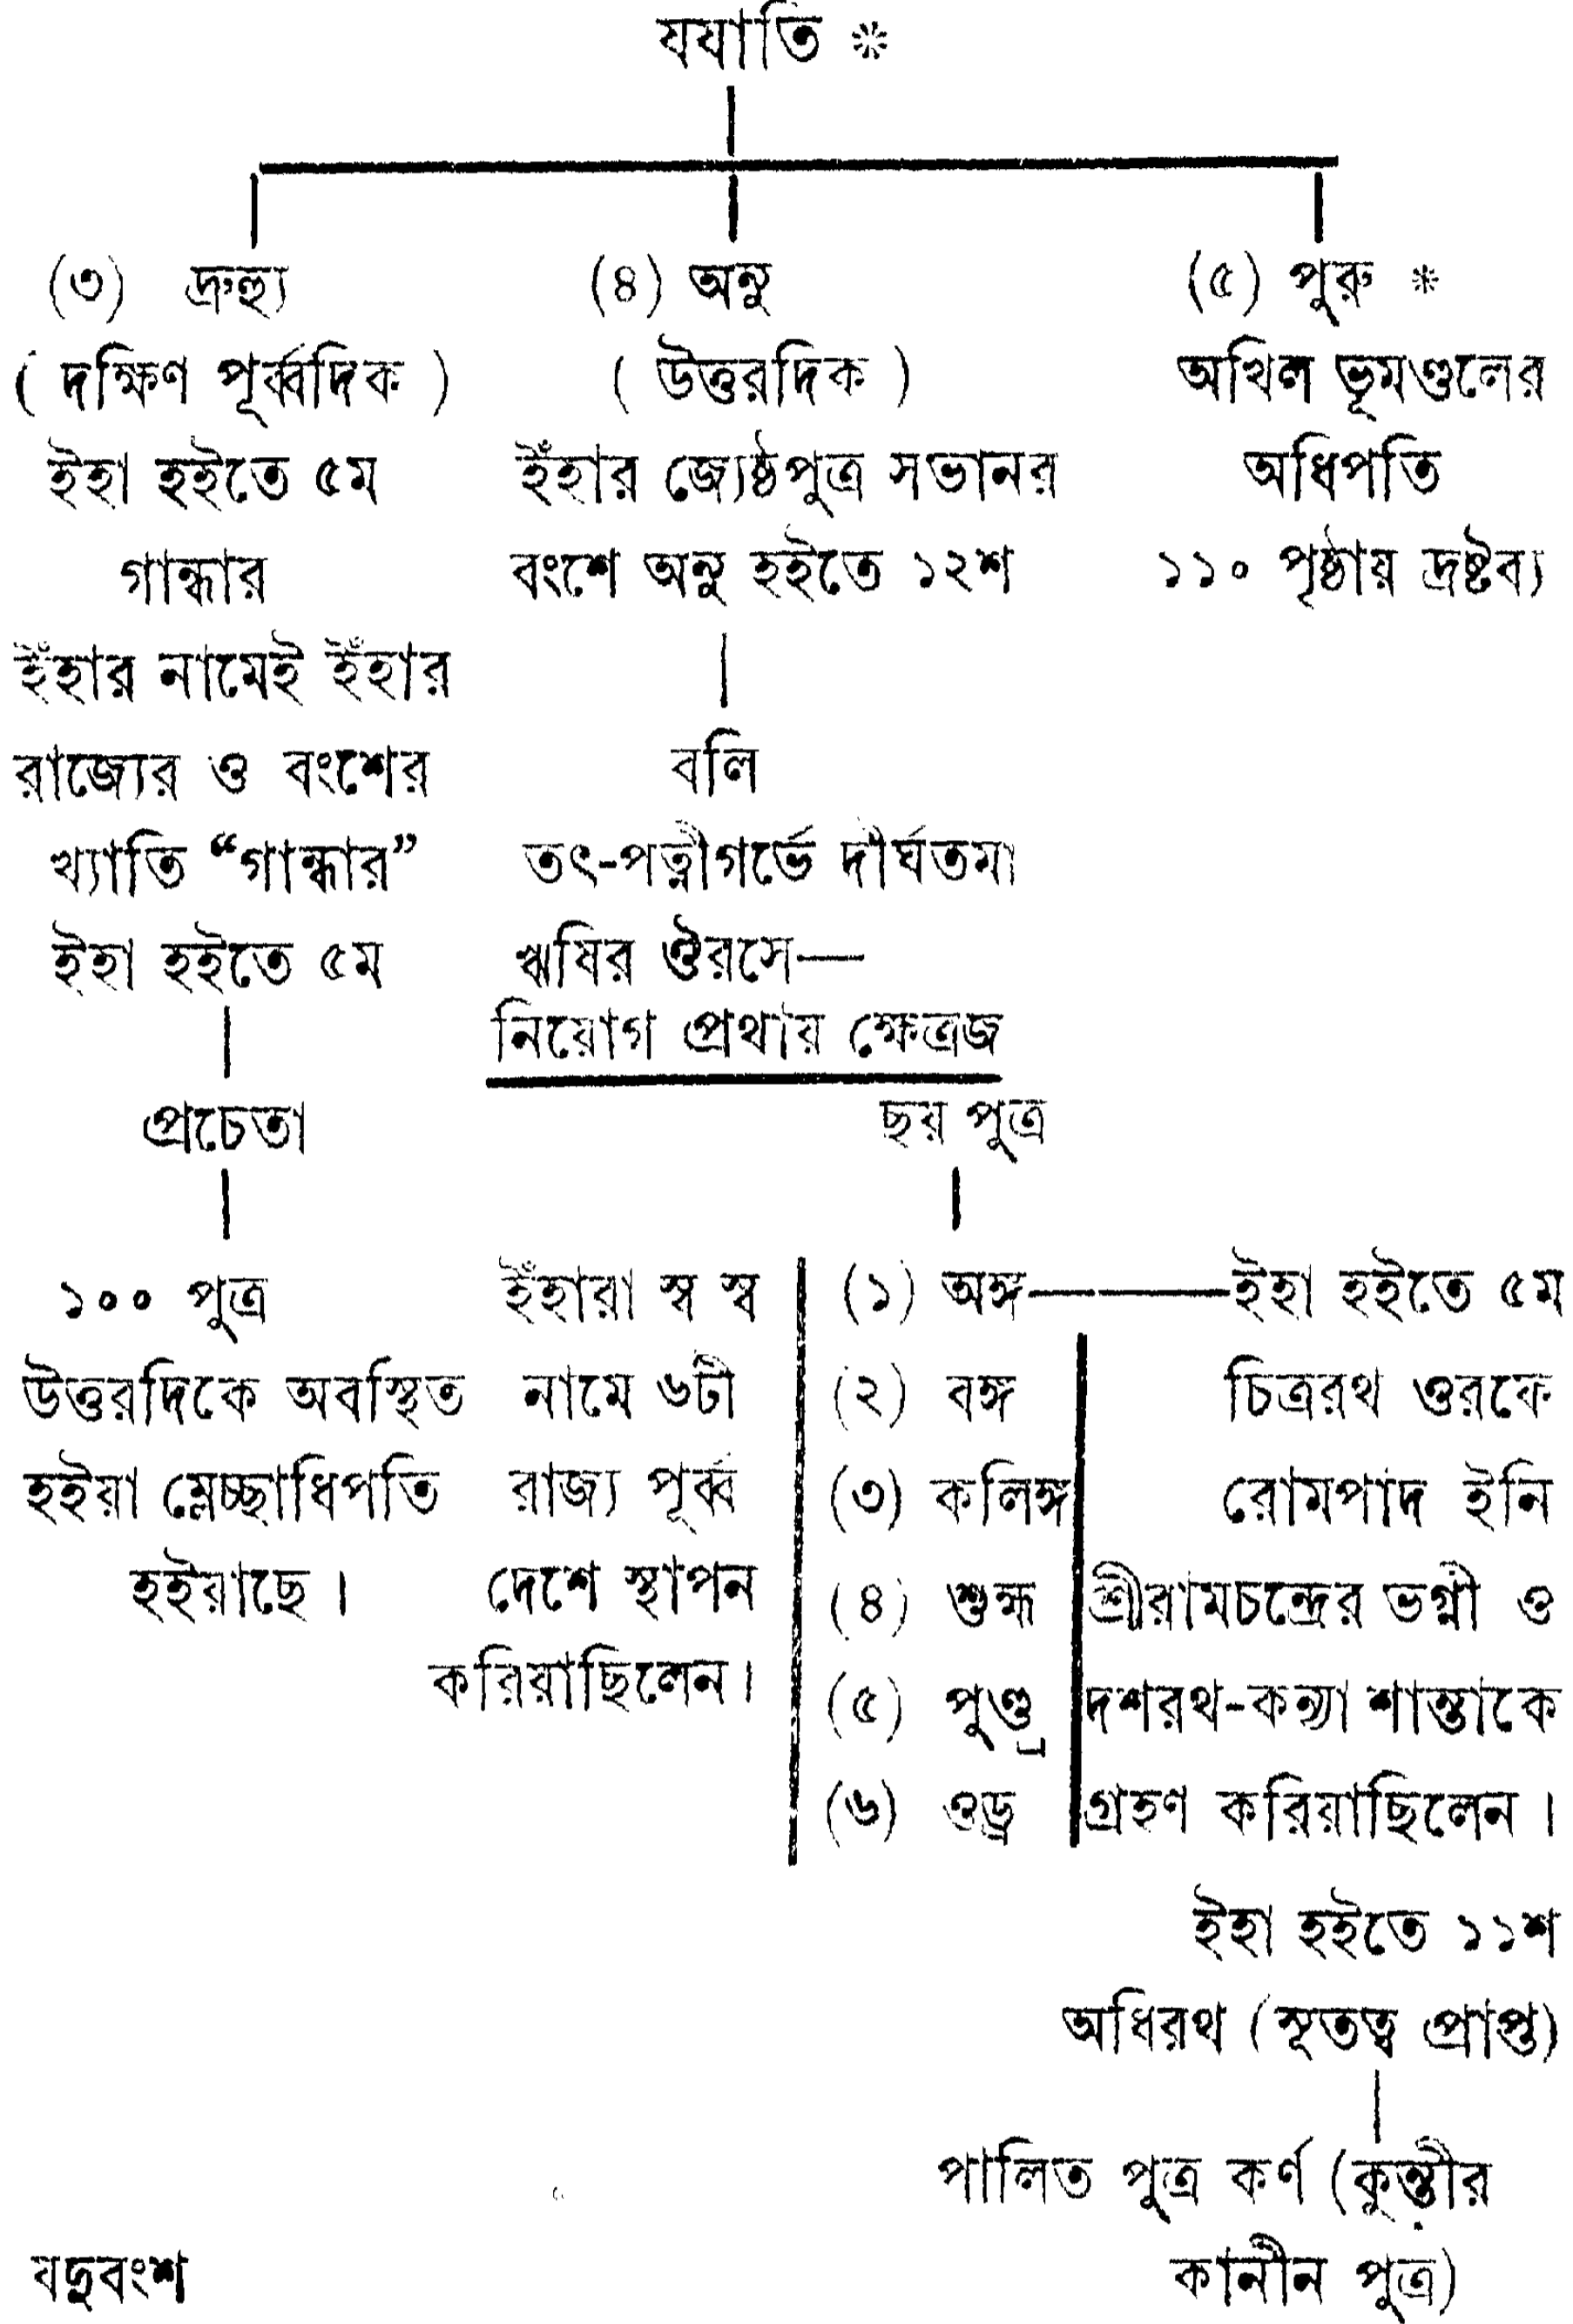 যযাতি *
(৩) দ্রুহ্যু
( দক্ষিণ পূর্ব্বদিক )
ইহা হইতে ৫ম
গান্ধার
ইঁহার নামেই ইঁহার
রাজ্যের ও বংশের
খ্যাতি “গান্ধার”
ইহা হইতে ৫ম
প্রচেতা
১০০ পুত্র
উত্তরদিকে অবস্থিত
হইয়া ম্লেচ্ছাধিপতি
হইয়াছে ।
(৪) অনু
( উত্তরদিক )
ইঁহার জ্যেষ্ঠপুত্র সভানর
বংশে অনু হইতে ১২শ
বলি
তৎ-পত্নীগর্ভে দীর্ঘতমা
ঋষির ঔরসে—
নিয়োগ প্রথায় ক্ষেত্রজ
ছয় পুত্র
ইঁহারা স্ব স্ব
নামে ৬টী
রাজ্য পূর্ব্ব
দেশে স্থাপন
করিয়াছিলেন।
(১) অঙ্গ
(২) বঙ্গ
(৩) কলিঙ্গ
(৪) শুহ্ম
(৫) পুণ্ড্র
(৬) ওড্র
—ইহা হইতে ৫ম
চিত্ররথ ওরফে
রোমপাদ ইনি
শ্রীরামচন্দ্রের ভগ্নী ও
দশরথ-কন্যা শান্তাকে
গ্রহণ করিয়াছিলেন ।
ইহা হইতে ১১শ
অধিরথ (সূতত্ব প্রাপ্ত)
পালিত পুত্র কর্ণ (কুন্তীর
কানীন পুত্র)
(৫) পুরু *
অখিল ভূমণ্ডলের
অধিপতি
১১০ পৃষ্ঠায় দ্রষ্টব্য
যদুবংশ